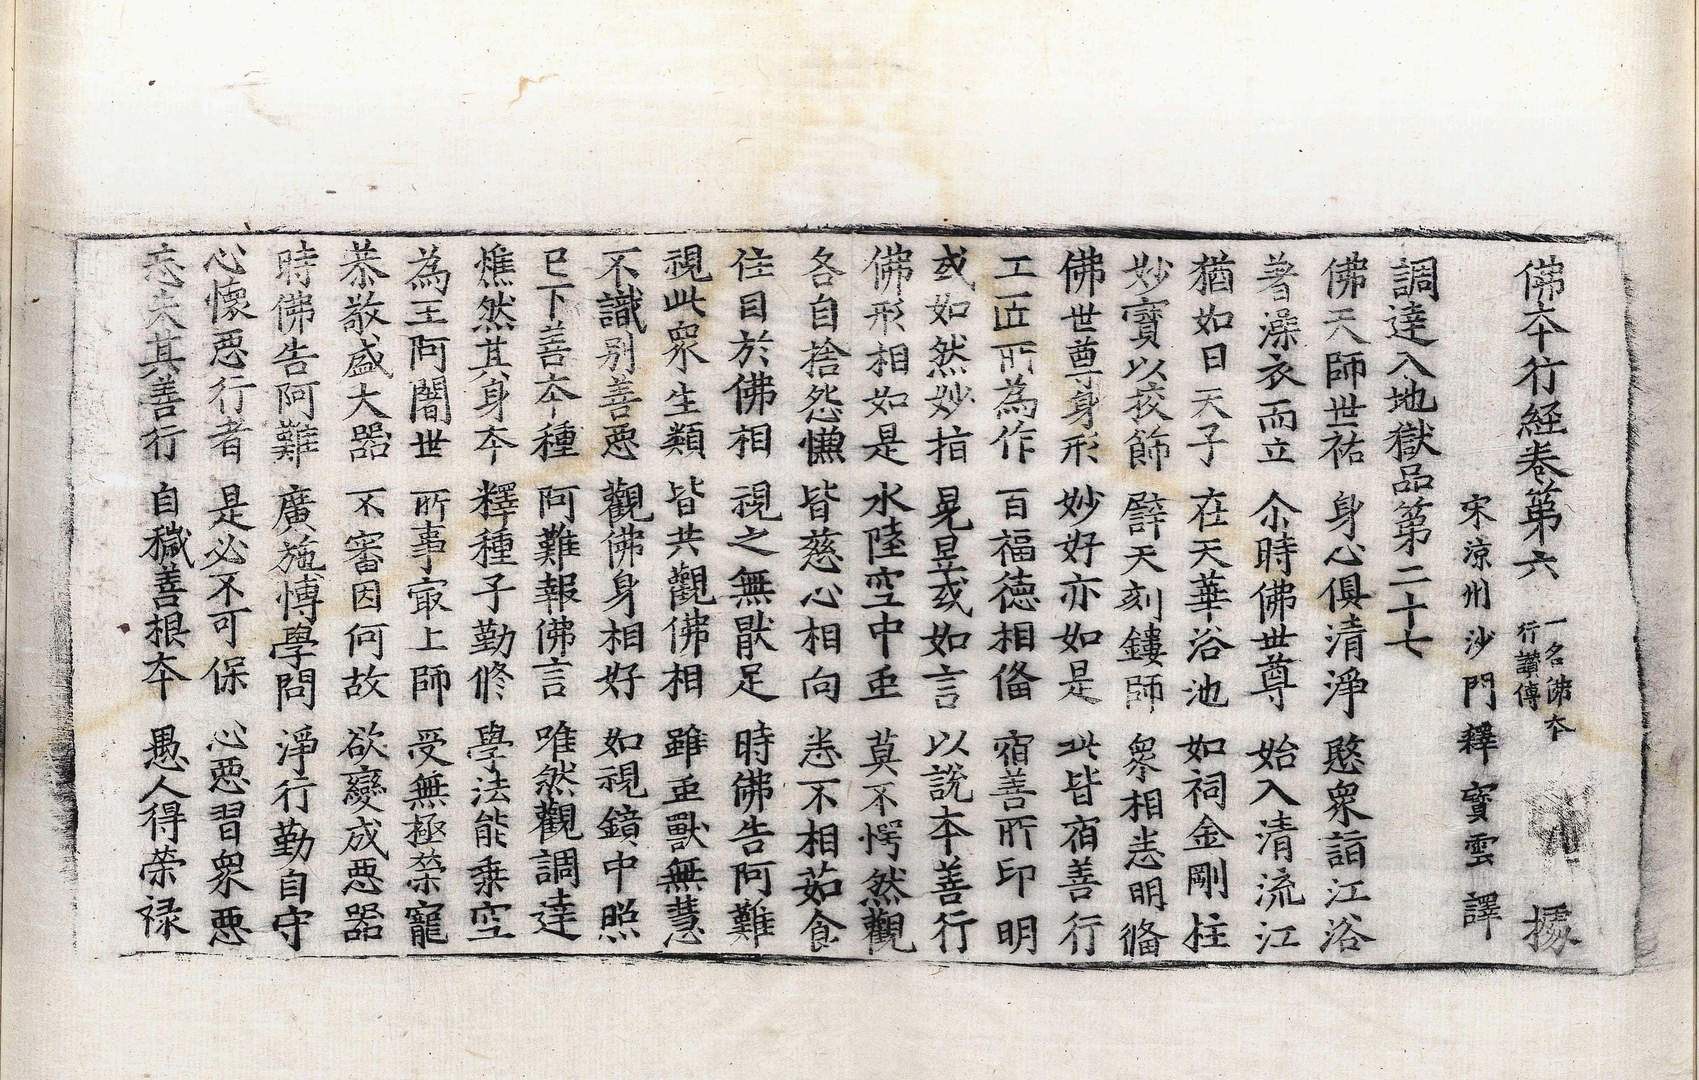 佛夲行經卷第六 一名佛夲行讚傳 㯫
宋涼州沙門釋寶雲譯
調達入地獄品第二十七
佛天師世祐 身心俱清淨 愍衆詣江浴
著澡衣而立 尒時佛世尊 始入清流江
猶如日天子 在天華浴池 如祠金剛柱
妙寶以挍飾 譬天刻鏤師 衆相悉明俻
佛世尊身形 妙好亦如是 此皆宿善行
工匠所為作 百福德相俻 宿善所印明
或如然妙指 晃昱或如言 以說夲善行
佛形相如是 水陸空中虫 莫不愕然觀
各自捨怨慊 皆慈心相向 悉不相茹食
住目於佛相 視之無猒足 時佛告阿難
視此衆生類 皆共觀佛相 雖虫獸無慧
不識別善惡 觀佛身相好 如視鏡中照
已下善夲種 阿難報佛言 唯然觀調達
燋然其身夲 釋種子勤修 學法能乗空
為王阿闍世 所事最上師 受無極榮寵
恭敬盛大器 不審因何故 欲變成惡器
時佛告阿難 廣施博學問 淨行勤自守
心懷惡行者 是必不可保 心惡習衆惡
忘失其善行 自穢善根夲 愚人得榮禄